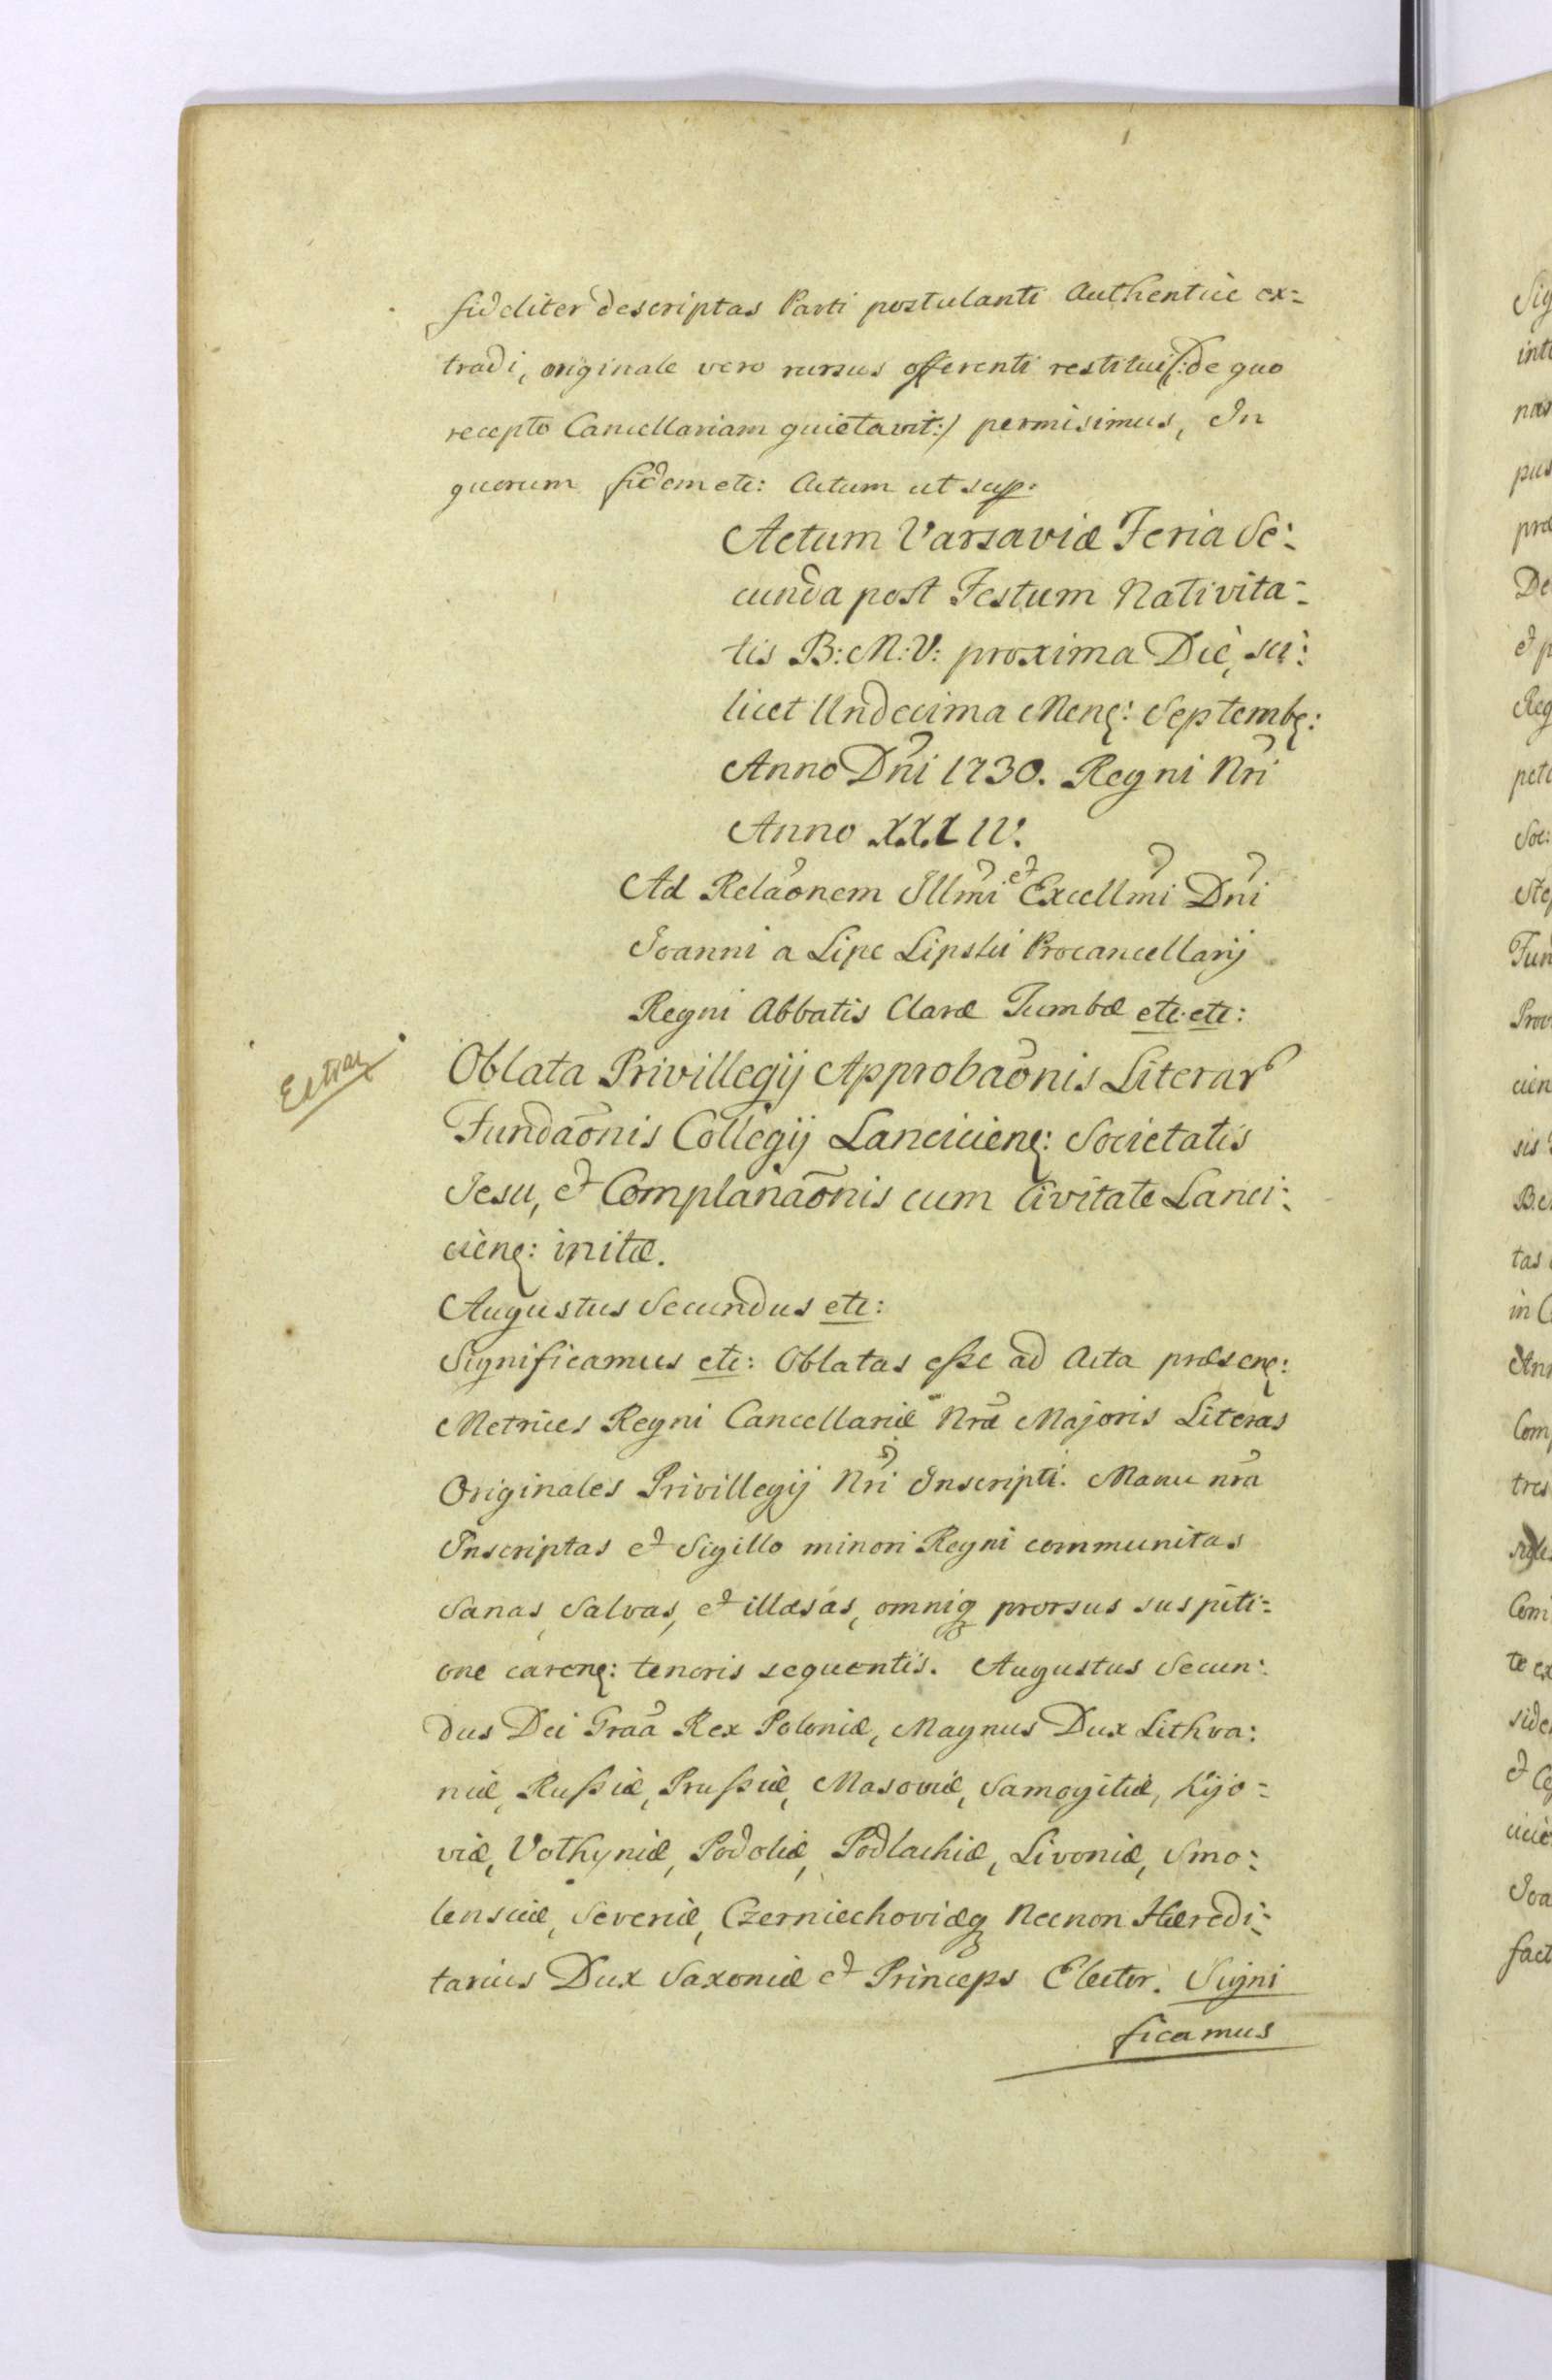 fideliter descriptas Parti postulanti Authenticè ex=
tradi, originale vero rursus offerenti restitui /:de quo
recepto Cancellariam quietavit:/ permisimus, In
quorum fidem etc: Actum ut sup.
Actum Varsaviæ Feria Se:
cunda post Festum Nativita=
tis B:M:V: proxima Die, sci:
licet Undecima Menȩ: Septembȩ:
Anno Dni 1730. Regni Nri
Anno XXXIV.
Ad Relãonem Illmi et Excellmi Dni
Joanni a Lipe Lipski Procancellarij
Regni Abbatis Claræ Tumbæ etc. etc:
Extrax
Oblata Privillegij Approbãonis Literar
Fundãonis Collegij Lancicienȩ: Societatis
Jesu, et Complanãonis cum Civitate Lanci:
cienȩ: initæ.
Augustus Secundus etc:
Significamus etc: Oblatas esse ad Acta præsenȩ:
Metrices Regni Cancellariæ Nræ Majoris Literas
Originales Privillegij Nri Inscripti. Manu nra
Inscriptas et Sigillo minori Regni communitas
Sanas, Salvas, et illæsas, omniq prorsus suspiti=
one carenȩ: tenoris sequentis. Augustus Secun:
dus Dei Graã Rex Poloniæ, Magnus Dux Lithva:
niæ, Rußiæ, Prußiæ, Masoviæ, Samogitiæ, Kijo=
viæ, Volhyniæ, Podoliæ, Podlachiæ, Livoniæ, Smo:
lensciæ, Severiæ, Czerniechoviæq Necnon Hæredi:
tarius Dux Saxoniæ et Princeps Elector. Signi
ficamus